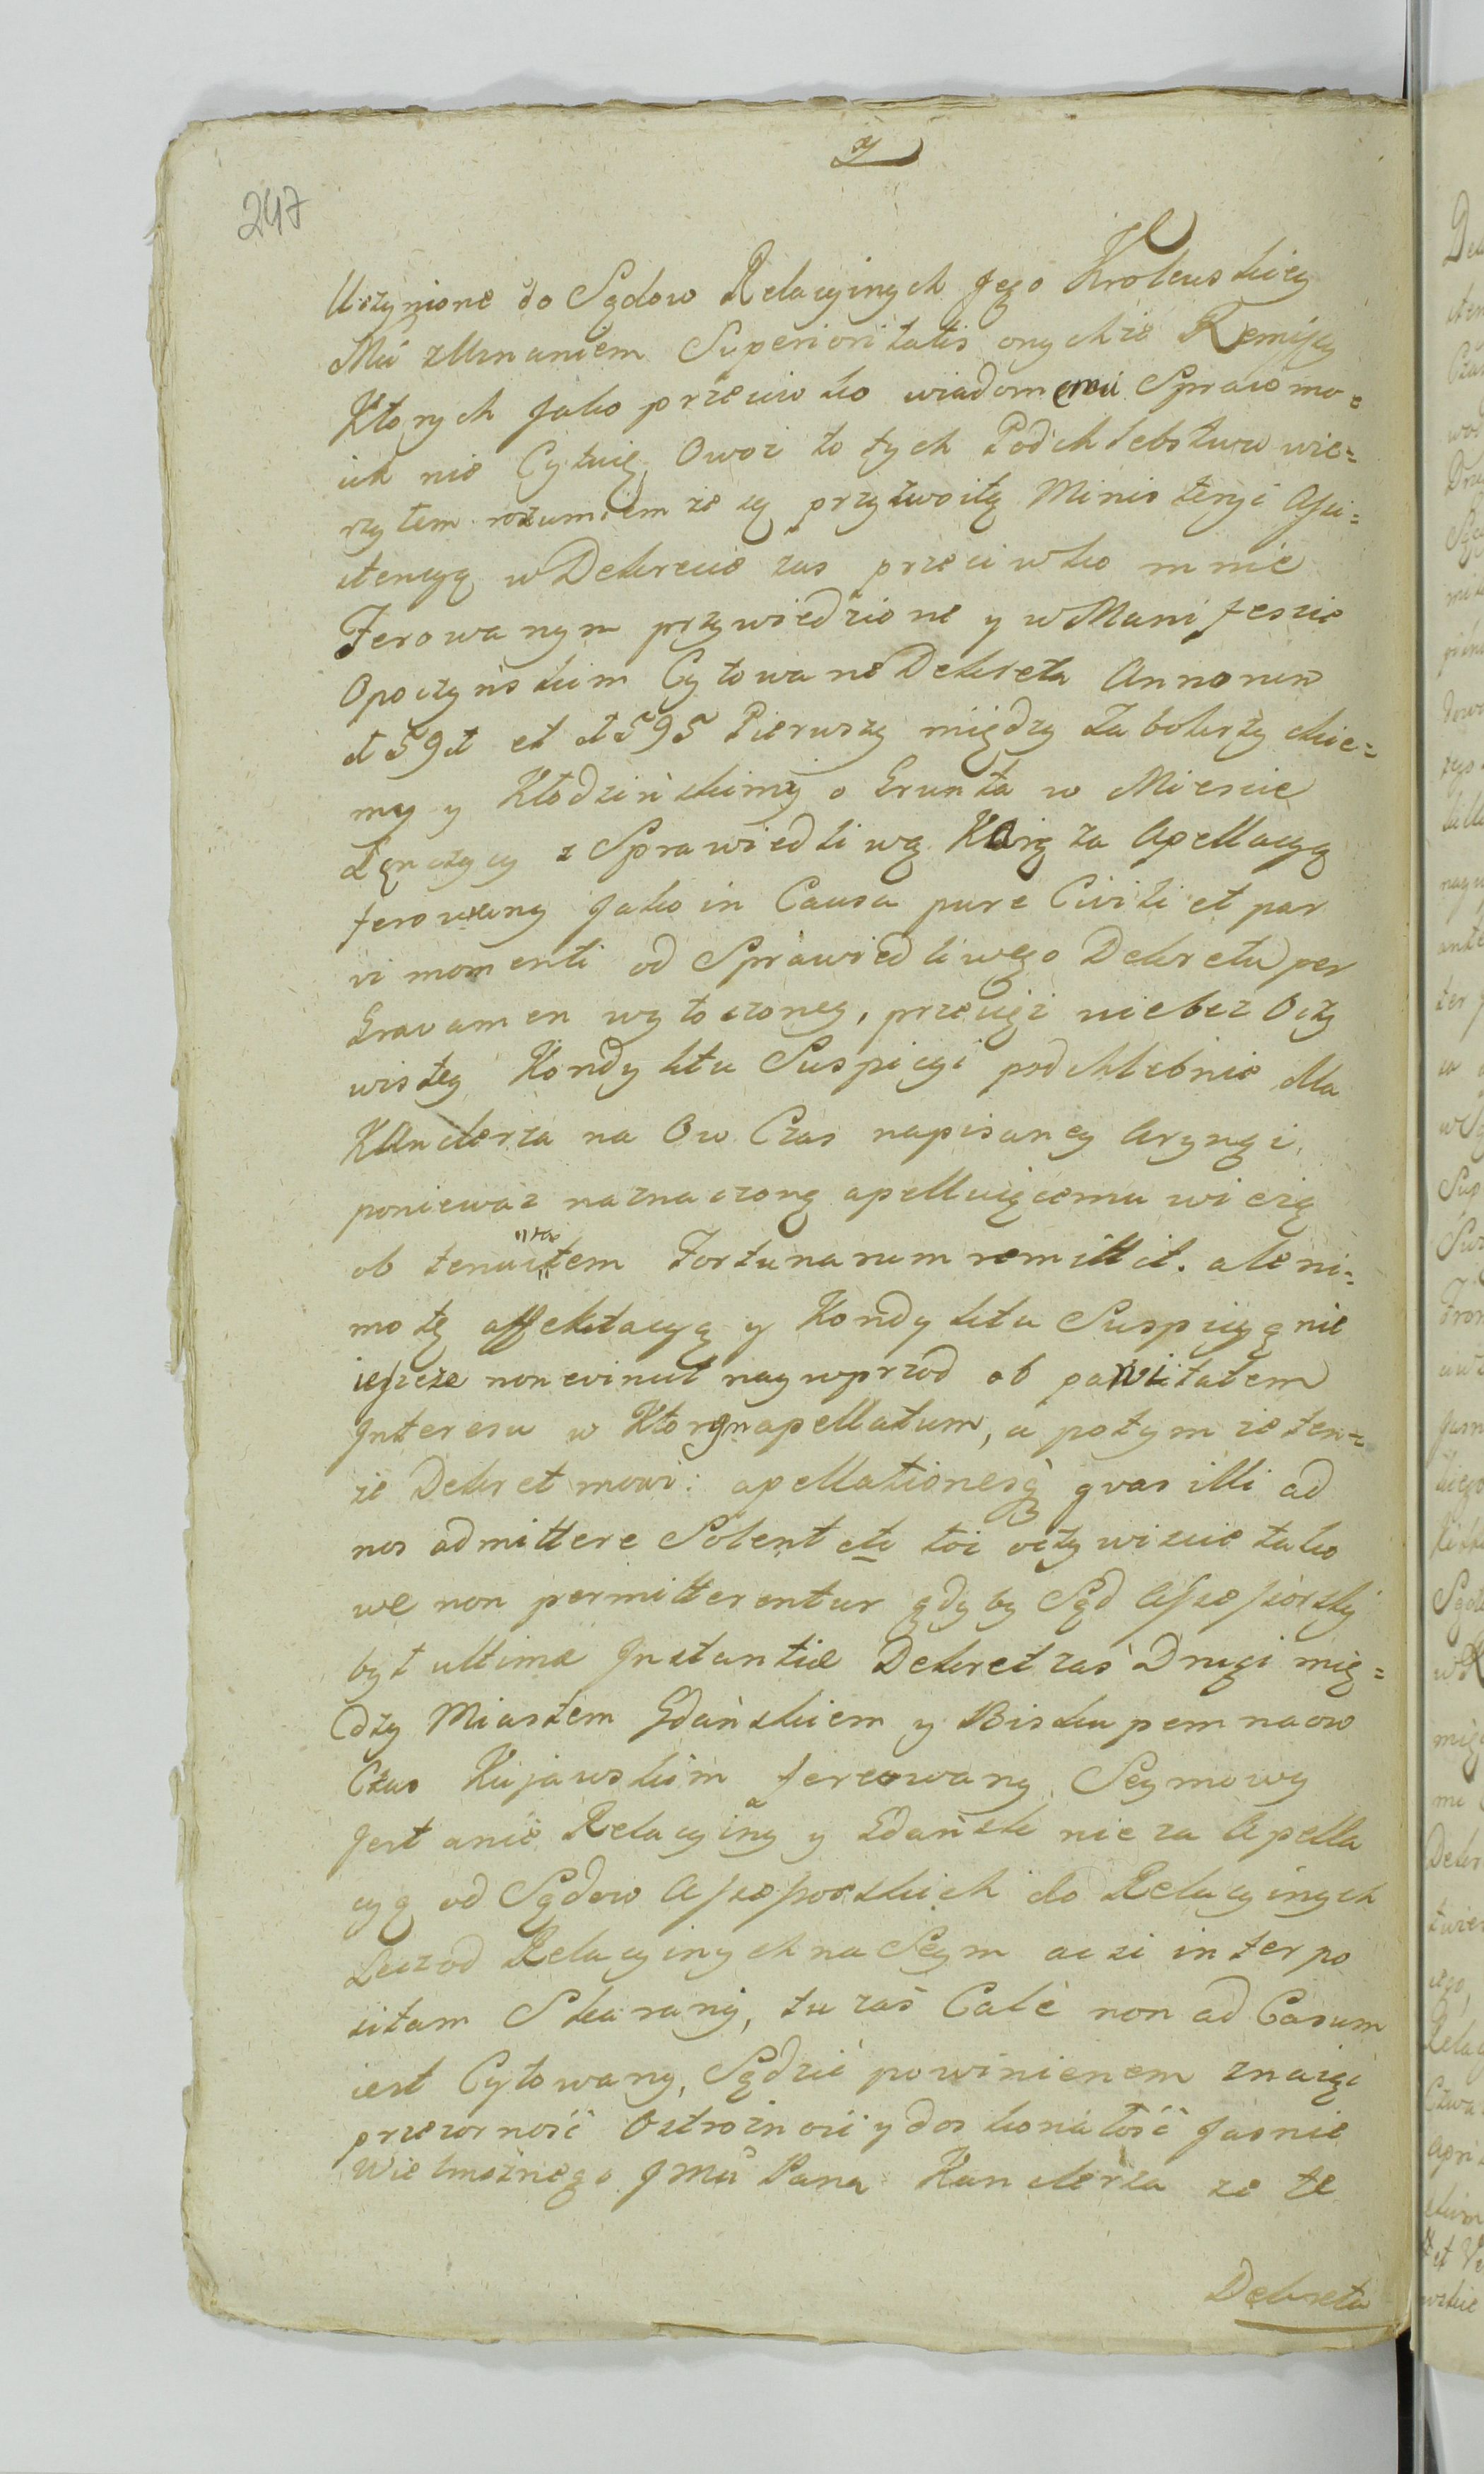 247
Uczynione do Sądow Relacyinych Jego Krolewskiey
Mci z Uznaniem Superioritatis onychże Remissy
Ktorych Jako przeciwko wiadomemu Spraw mo=
ich nie Cytuię, Owoż to tych Podchlebstwu wie=
rzytem rozumiem że są przyzwoitą Ministeryi Assi=
stencyą w Dekrecie zas przeciwko mnie
Ferowanym przywiedzione y w Manifescie
Opoczynskim Cytowane Dekreta Annorum
1591 et 1595 Pierwszy między Zabokrzyckie=
my y Kłodzińskimy o Grunta w Miescie
Łęczycy z Sprawiedliwą Wieżą za Apellacyą
ferowany Jako in Causa pure Civili et par
vi momenti od Sprawiedliwego Dekretu per
Gravamen wytoczoney, przeciąż nie bez Oczy
wistey Kondyktu Suspicyi podchlebnie dla
Kanclerza na Ow Czas napisaney Aryngi,
ponieważ naznaczoną apelluiącemu wieżą
ob tenuitatem Fortunarum remittit. ale ni=
mo tę affektacyą y Kondyktu Suspicyą nic
ieszcze non evincit naywprzod ob parvitatem
Interesu w Ktorym apellatum, a potym że ten=
że Dekret mowi: apellationesq quas illi ad
nos admittere Solent etc toż oczywiscie tako
we non permitterentur gdyby Sąd Assessorski
był ultimæ Instantiæ Dekret zaś Drugi mię=
dzy Miastem Gdańskiem y Biskupem na ow
Czas Kujawskim ferowany Seymowy
Jest a nie Relacyiny y Gdańsk nie za Apella
cyą od Sądow Assessorskich do Relacyinych
Lecz od Relacyinych na Seym ac si interpo
sitam Skarany, tu zaś Cale non ad Casum
iest Cytowany, Sądzić powinienem znaiąc
przezorność Ostrożność y doskonałość Jasnie
Wielmożnego Jmci Pana Kanclerza ze te
Dekreta